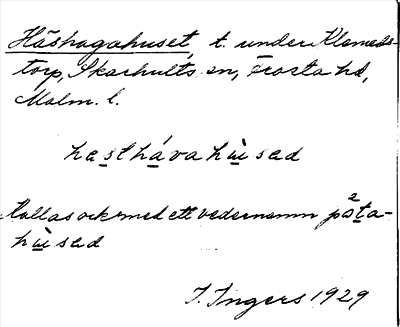 Häshagahuset, t. under Klameds-
torp, Skarhults sn, Frosta hd,
Malm. l.
hesthávahùsed
Kallas ock med ett vedernamn påta-
hùsed
I. Ingers 1929